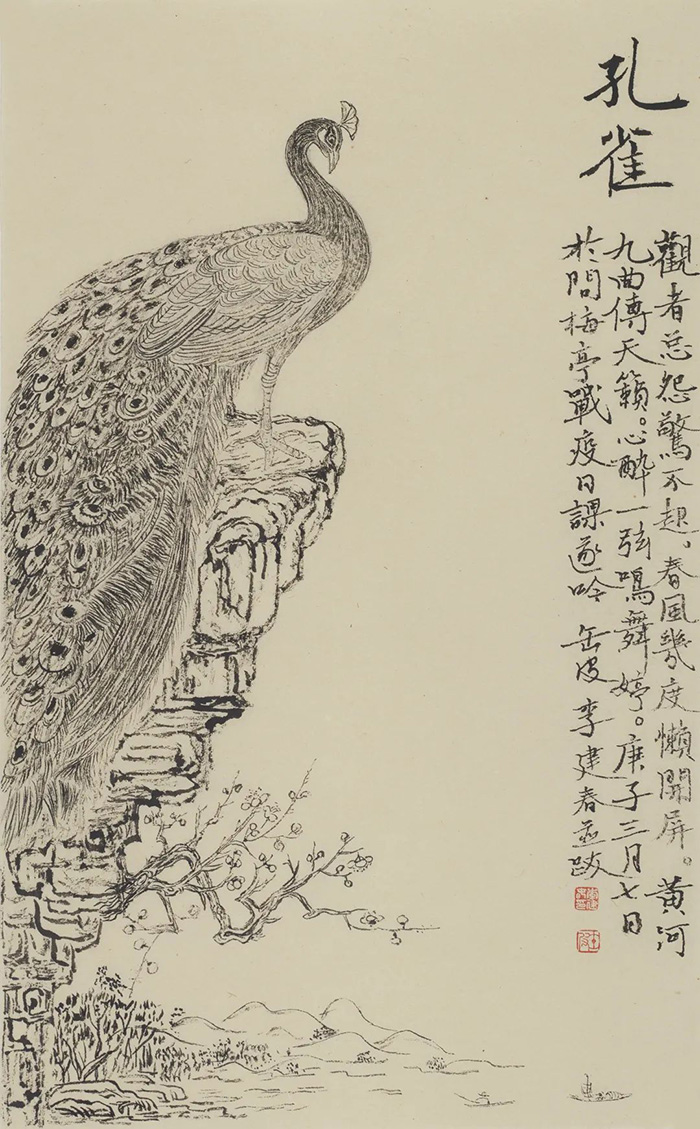 孔雀
觀者总怨驚不起，春風幾度懶開屏。黄河
九曲傳天籟。心醉一弦鳴舞婷。庚子三月七日
於問梅亭戰疫日課遂吟 缶皮 李建春並跋